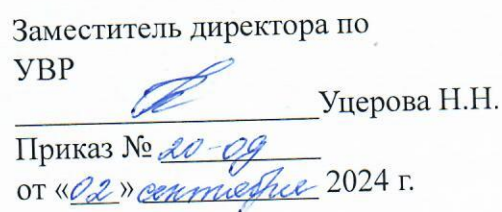 Заместитель директора по
УВР
Уцерова Н.Н.
Приказ № 20-09
от «02» сентября 2024 г.